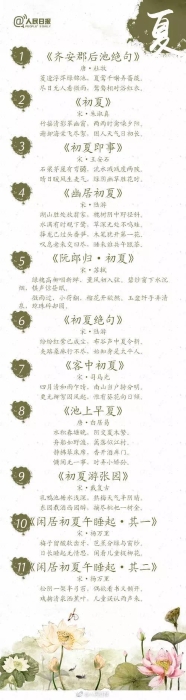 @人民日报
PEOPLE'S DAILY
夏
1
《齐安郡后池绝句》
唐·杜牧
菱透浮萍绿锦池,夏莺千啭弄蔷薇。
尽日无人看微雨,鸳鸯相对浴红衣。
2
《初夏》
宋·朱淑真
竹摇清影罩幽窗,两两时禽噪夕阳。
谢却海棠飞尽絮,困人天气日初长。
3
《初夏即事》
宋·王安石
石梁茅屋有弯碕,流水溅溅度两陂。
晴日暖风生麦气,绿阴幽草胜花时。
4
《幽居初夏》
宋·陆游
湖山胜处放翁家,槐柳阴中野径斜。
水满有时观下鹭,草深无处不鸣蛙。
箨龙已过头番笋,木笔犹开第一花。
叹息老来交旧尽,睡来谁共午瓯茶。
5
《阮郎归·初夏》
宋·苏轼
绿槐高柳咽新蝉。薰风初入弦。碧纱窗下水沉烟。棋声惊昼眠。
微雨过,小荷翻。榴花开欲然。玉盆纤手弄清泉。琼珠碎却圆。
6
《初夏绝句》
宋·陆游
纷纷红紫已成尘,布谷声中夏令新。
夹路桑麻行不尽,始知身是太平人。
7
《客中初夏》
宋·司马光
四月清和雨乍晴,南山当户转分明。
更无柳絮因风起,惟有葵花向日倾。
8
《池上早夏》
唐·白居易
水积春塘晚,阴交夏木繁。
舟船如野渡,篱落似江村。
静拂琴床席,香开酒库门。
慵闲无一事,时弄小娇孙。
9
《初夏游张园》
宋·戴复古
乳鸭池塘水浅深,熟梅天气半阴晴。
东园载酒西园醉,摘尽枇杷一树金。
10
《闲居初夏午睡起·其一》
宋·杨万里
梅子留酸软齿牙,芭蕉分绿与窗纱。
日长睡起无情思,闲看儿童捉柳花。
11
《闲居初夏午睡起·其二》
宋·杨万里
松阴一架半弓苔,偶欲看书又懒开。
戏掬清泉洒蕉叶,儿童误认雨声来。
@人民日报